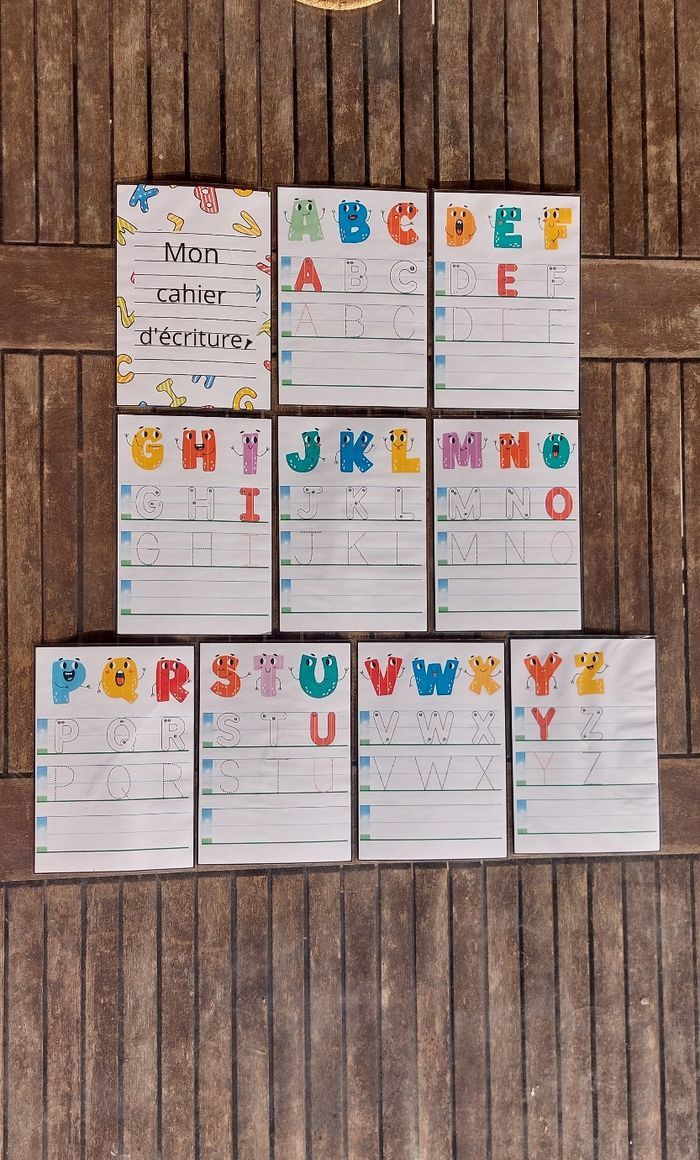 Mon
cahier
d'écriture
A B C
A B C
A B C
D E F
D E F
D E F
G H I
G H I
G H I
J K L
J K L
J K L
M N O
M N O
M N O
P Q R
P Q R
P Q R
S T U
S T U
S T U
V W X
V W X
V W X
Y Z
Y Z
Y Z